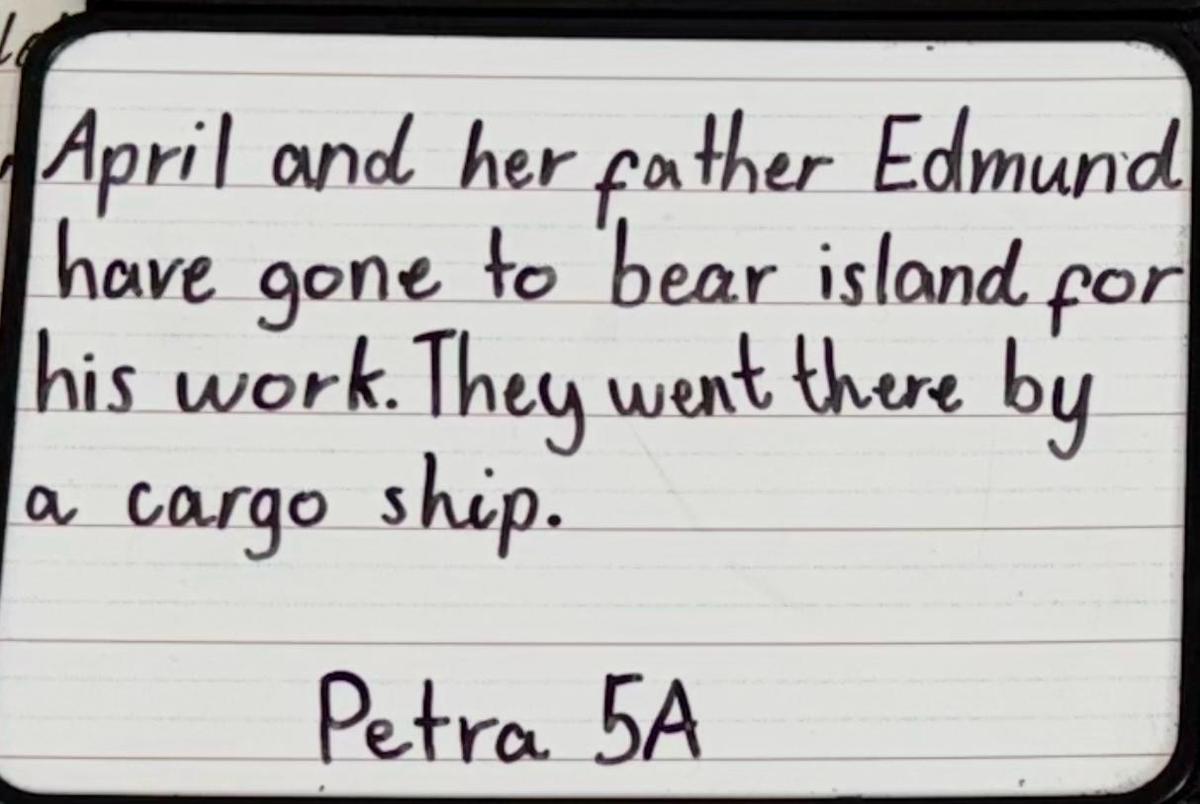 April and her father Edmund
have gone to bear island for
his work. They went there by
a cargo ship.
Petra 5A